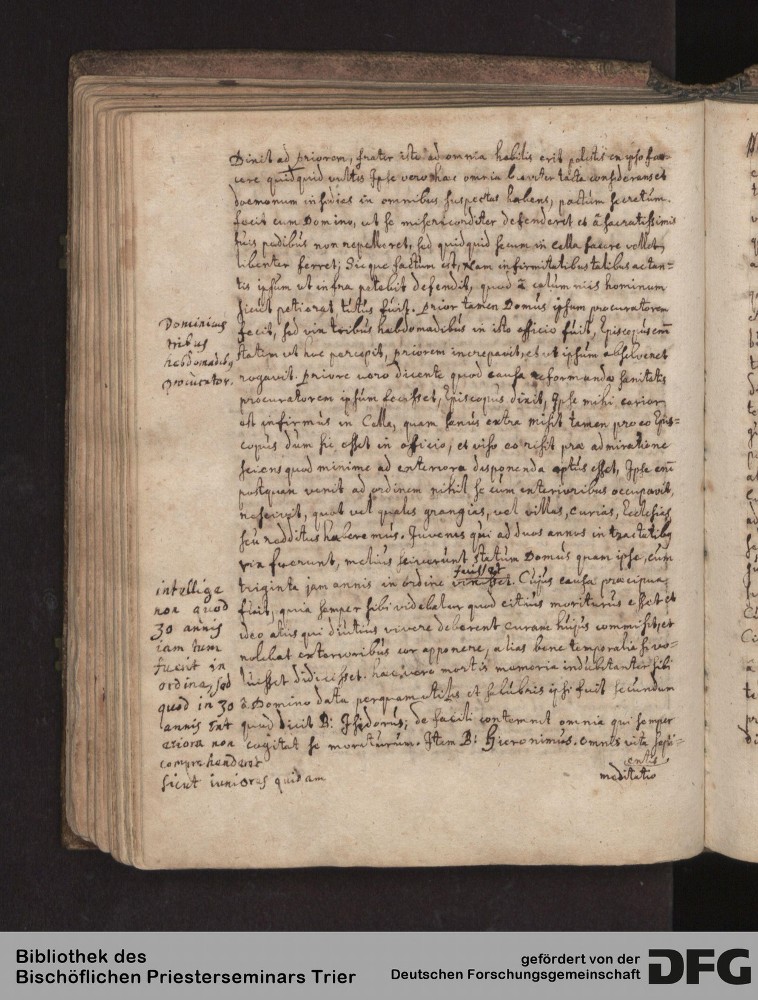 Dixit ad priorem, frater iste ad omnia habilis erit potestis ex ipso fa-
cere quidquid vultis Ipse vero haec omnia leviter tacta considerans et
daemonum insidias in omnibus suspectas habens, pactum secretum
fecit cum Domino, ut se misericorditer defenderet et à sacratissimis
suis pedibus non repelleret, sed quidquid secum in cella facere vellet
libenter ferret; sicque factum est, nam infirmitatibus talibus
tis ipsum ut infra patebit defendit, quod
sicut petierat, tutus fuit. prior tamen Domus ipsum procuratorem
fecit, sed vix tribus habdomadibus in isto officio fuit, Episcopus
statim ut hoc percepit, priorem increpavit, et ut ipsum absolveret
rogavit. priore vero dicente quod causa reformanda sanitatis
procuratorem ipsum fecisset, Episcopus dixit, Ipse mihi carior
est infirmus in Cella, quam sanus extra misit tamen pro eo Epis-
copus dum sic esset in officio, et viso eo risit prae admiratione
sciens quod minime ad exteriora disponenda aptus esset, Ipse
postquam venit ad ordinem nihil se cum exterioribus occupavit,
nescivit, quot vel quales grangias, vel villas, curias, Ecclesias
seu redditus haberemus. Juvenes qui ad duos annos in
vix fuerunt, melius sciverunt statum Domus quam ipse, cum
fuisset
triginta jam annis in ordine vixisset. Cujus causa praecipua
fuit, quia semper sibi videbatur quod citius moriturus esset et
ideo aliis qui diutius vivere deberent curam hujus commisit, et
nolebat exterioribus cor apponere, alias bene temporalia si vo-
luisset didicisset. haec vere mortis memoria indubitanter sibi
à Domino data perquam utilis et salubris ipsi fuit secundum
quod dicit B: Isidorus; de facili contemnit omnia qui semper
cogitat se moriturum. Item B: Hieronimus. omnis vita sapi-
entis
meditatio
Dominicus
tribus
hebdomadibus
procurator.
intellige
non quod
30 annis
iam tum
fuerit in
ordine, sed
quod in 30
annis ext
eriora non
comprehenderit
sicut iuniores quidam
Bibliothek des
Bischöflichen Priesterseminars Trier
gefördert von der
Deutschen Forschungsgemeinschaft
DFG